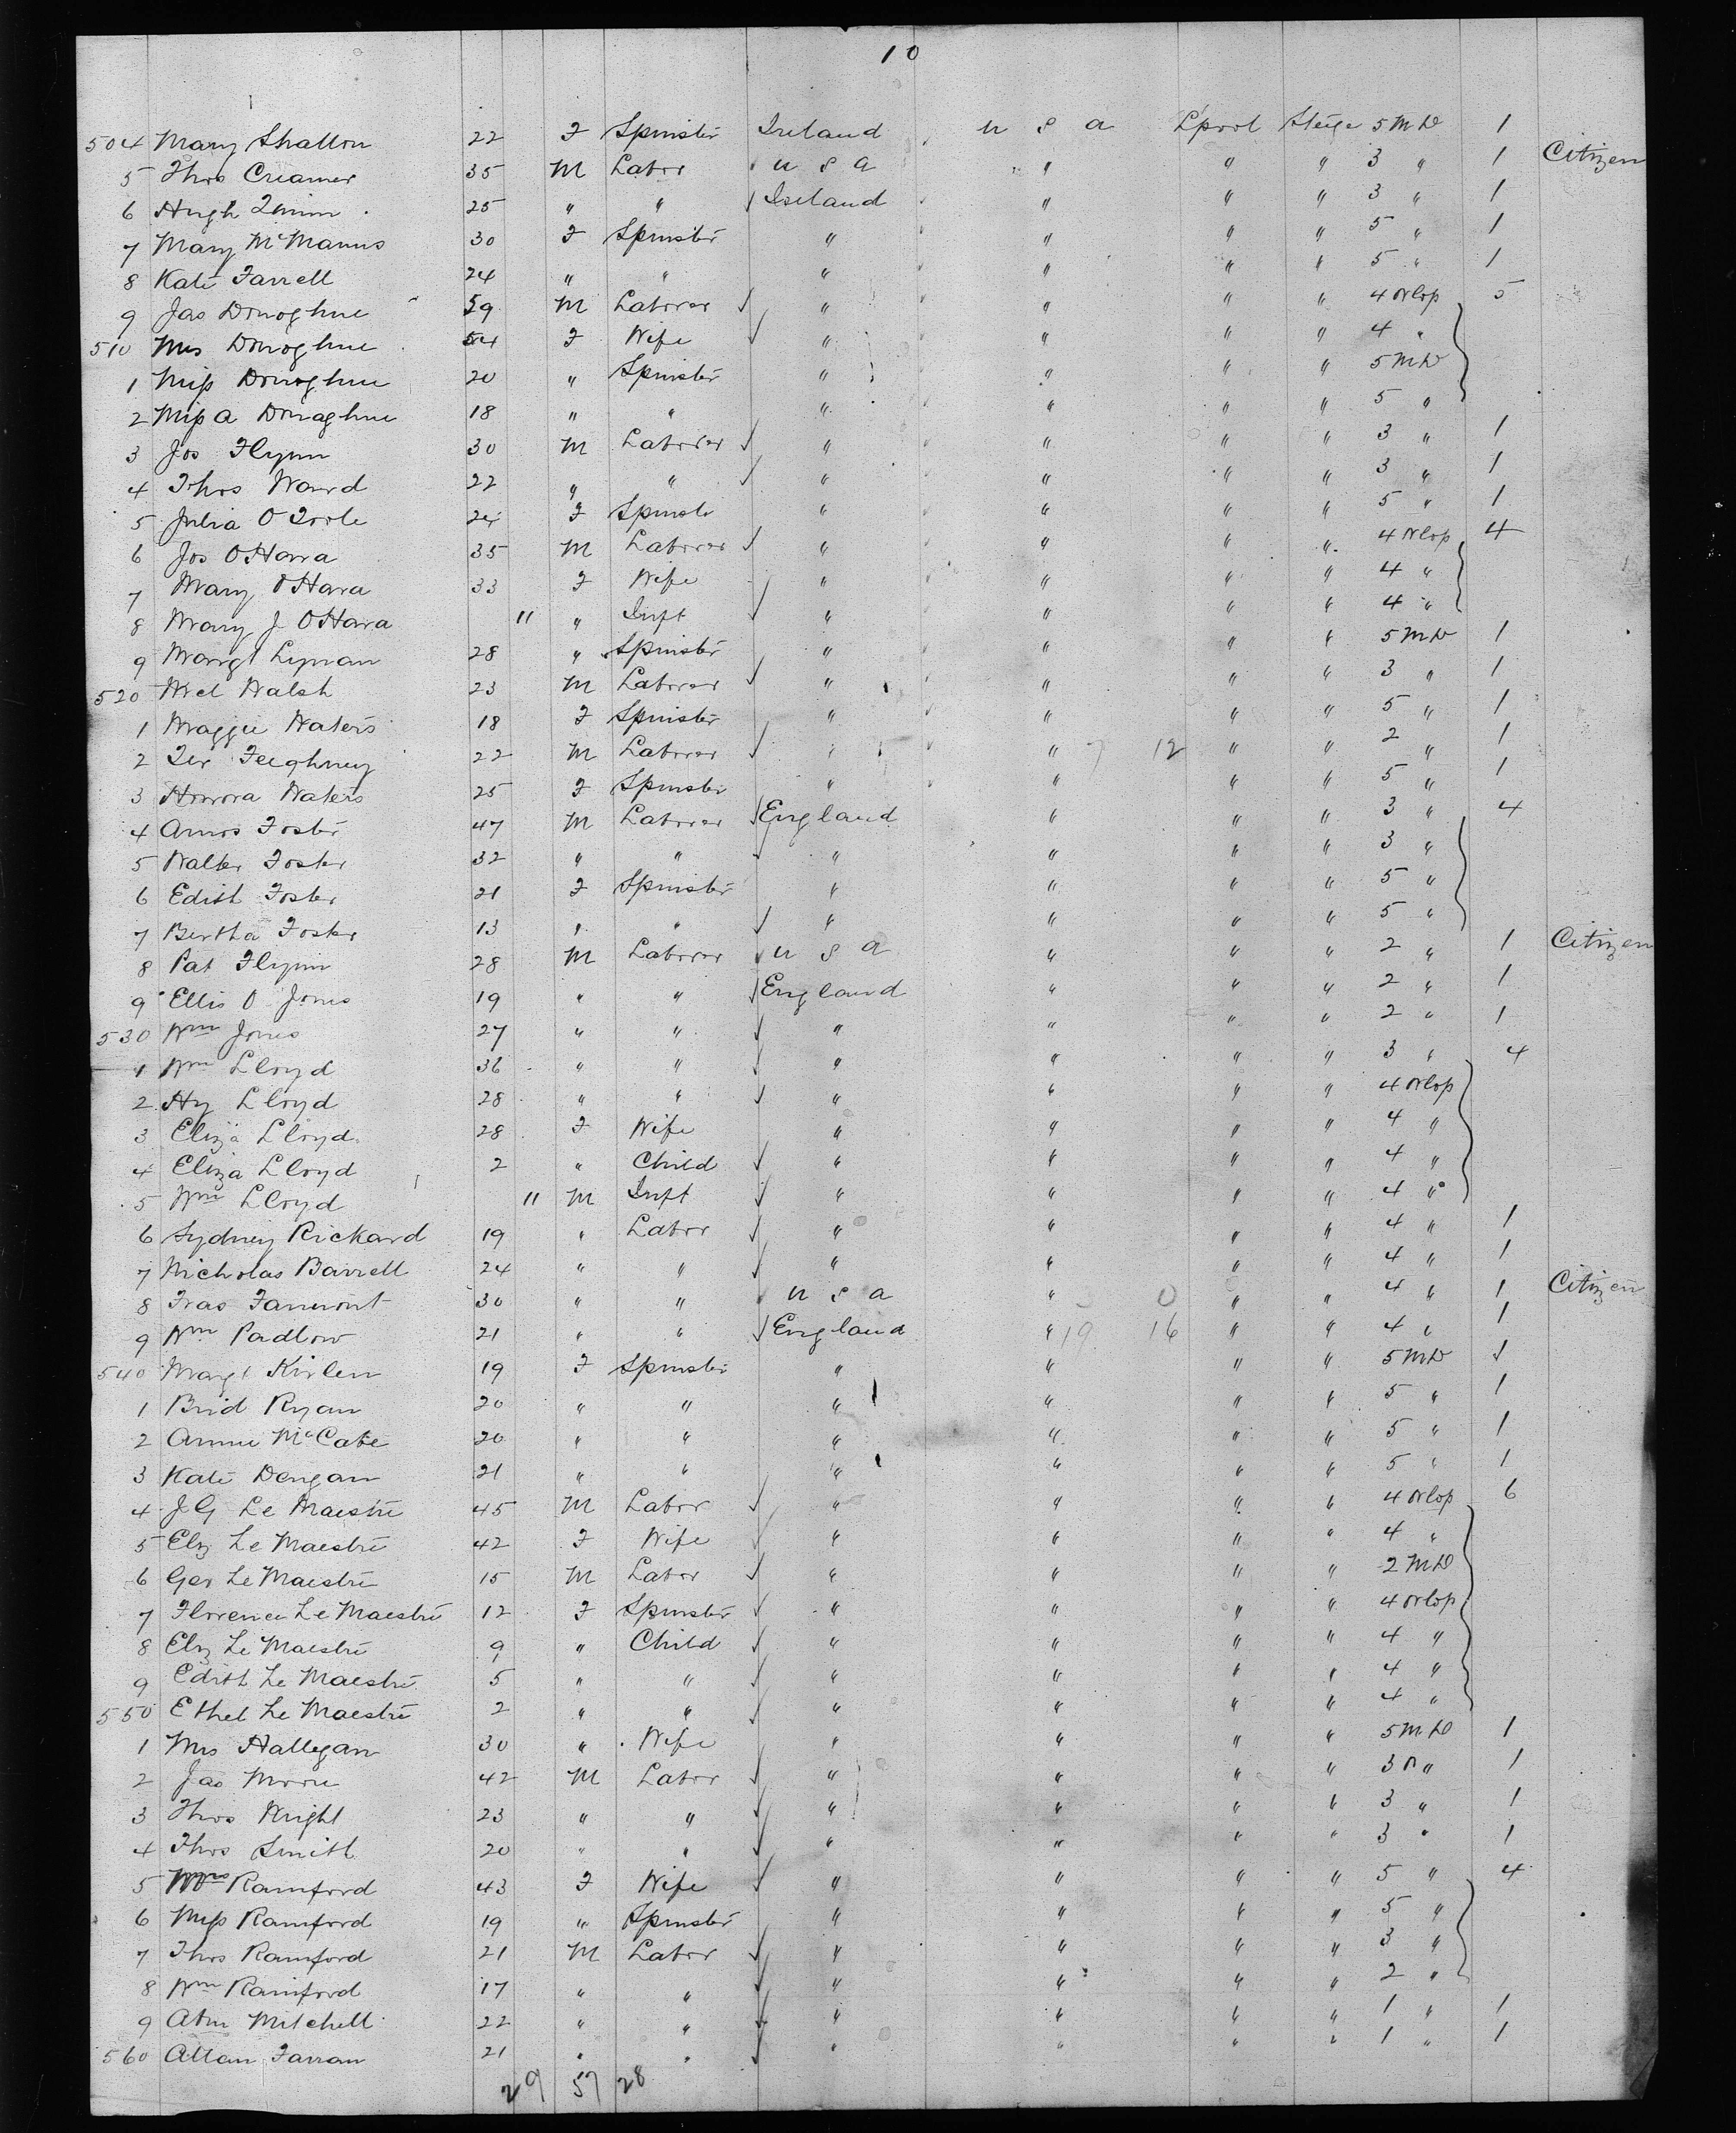 10
504 Mary Shallon 22 F Spinster Ireland U S A Lpool Steige 5 M D 1
5 Thos Creamer 35 M Labor U S A " " " 3 " 1 Citizen
6 Hugh Quinn 25 " " Ireland " " " 3 " 1
7 Mary McManus 30 F Spinster " " " " 5 " 1
8 Kate Farrell 24 " " " " " " 5 " 1
9 Jas Donoghue 59 M Laborer " " " " 4 Orlop 5
510 Mrs Donoghue 54 F Wife " " " " 4 "
1 Miss Donoghue 20 " Spinster " " " " 5 M D
2 Miss A Donaghue 18 " " " " " " 5 "
3 Jos Flynn 30 M Laborer " " " " 3 " 1
4 Thos Ward 22 " " " " " " 3 " 1
5 Julia O Toole 24 F Spinstr " " " " 5 " 1
6 Jos O Hara 35 M Laborer " " " " 4 Orlop 4
7 Mary O Hara 33 F Wife " " " " 4 "
8 Mary J O Hara 11 " Inft " " " " 4 "
9 Margt Lynan 28 " Spinster " " " " 5 M D 1
520 Mcl Walsh 23 M Laborer " " " " 3 " 1
1 Maggie Waters 18 F Spinster " " " " 5 " 1
2 Ter Feeghney 22 M Laborer " " 7 12 " " 2 " 1
3 Honora Waters 25 F Spinster " " " " 5 " 1
4 Amos Foster 47 M Laborer England " " " 3 " 4
5 Walter Foster 32 " " " " " " 3 "
6 Edith Foster 21 F Spinster " " " " 5 "
7 Bertha Foster 13 " " " " " " 5 "
8 Pat Flynn 28 M Laborer U S A " " " 2 " 1 Citizen
9 Ellis O Jones 19 " " England " " " 2 " 1
530 Wm Jones 27 " " " " " " 2 " 1
1 Wm Lloyd 36 " " " " " " 3 " 4
2 Hy Lloyd 28 " " " " " " 4 Orlop
3 Eliza Lloyd 28 F Wife " " " " 4 "
4 Eliza Lloyd 2 " Child " " " " 4 "
5 Wm Lloyd 11 M Inft " " " " 4 "
6 Sydney Rickard 19 " Labor " " " " 4 " 1
7 Nicholas Barrell 24 " " " " " " 4 " 1
8 Fras 30 " " U S A " 0 " " 4 " 1 Citizen
9 Wm Padlow 21 " " England " 19 16 " " 4 " 1
540 Margt Kirlen 19 F Spinster " " " " 5 M D 1
1 Brid Ryan 20 " " " " " " 5 " 1
2 Annie McCabe 20 " " " " " " 5 " 1
3 Kate Dengan 21 " " " " " " 5 " 1
4 J G Le Maestre 45 M Labor " " " " 4 Orlop 6
5 Elz Le Maestre 42 F Wife " " " " 4 "
6 Geo Le Maestre 15 M Labor " " " " 2 M D
7 Florence Le Maestre 12 F Spinster " " " " 4 Orlop
8 Elz Le Maestre 9 " Child " " " " 4 "
9 Edith Le Maestre 5 " " " " " " 4 "
550 Ethel Le Maestre 2 " " " " " " 4 "
1 Mrs Hallegan 30 " Wife " " " " 5 M D 1
2 Jas Moore 42 M Labor " " " " 3 " 1
3 Thos Wright 23 " " " " " " 3 " 1
4 Thos Smith 20 " " " " " " 3 " 1
5 Mrs Rainford 43 F Wife " " " " 5 " 4
6 Miss Rainford 19 " Spinster " " " " 5 "
7 Thos Rainford 21 M Labor " " " " 3 "
8 Wm Rainford 17 " " " " " " 2 "
9 Abm Mitchell 22 " " " " " " 1 " 1
560 Allan Farran 21 " " " " " " 1 " 1
29 57 28